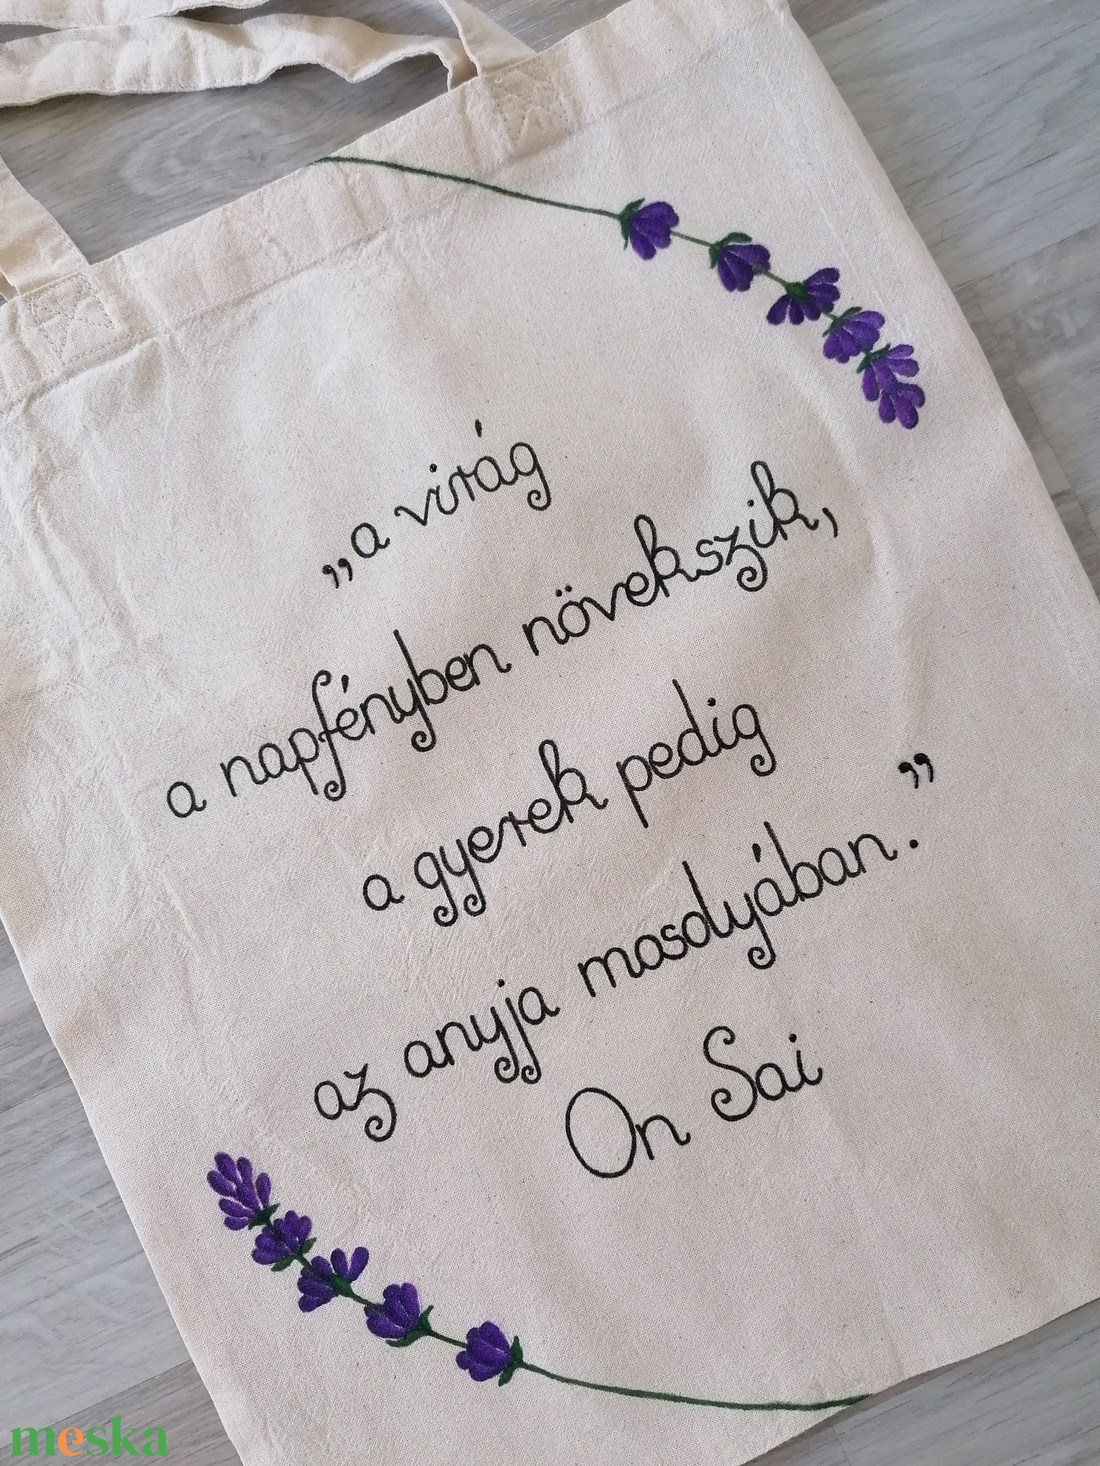 „a virág
a napfényben növekszik,
a gyerek pedig
az anyja mosolyában.”
On Sai
meska